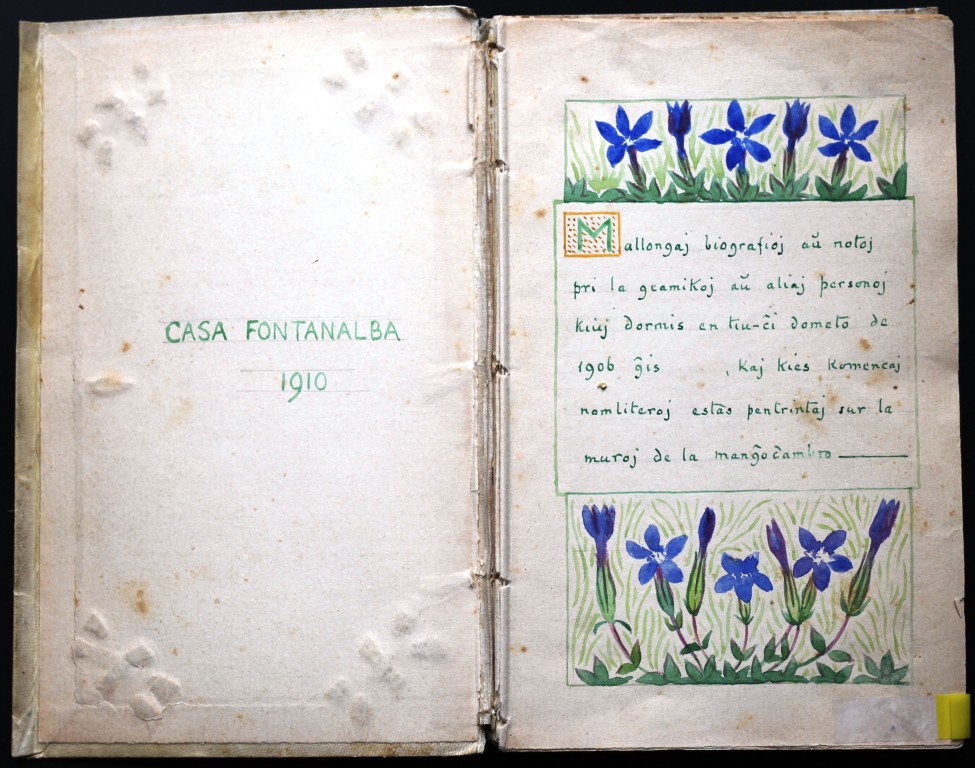 CASA FONTANALBA
1910
Mallongaj biografioj aŭ notoj
pri la geamikoj aŭ aliaj personoj
kiuj dormis en tiu-ĉi dometo de
1906 ĝis , kaj kies komencaj
nomliteroj estas pentrintaj sur la
muroj de la manĝoĉambro